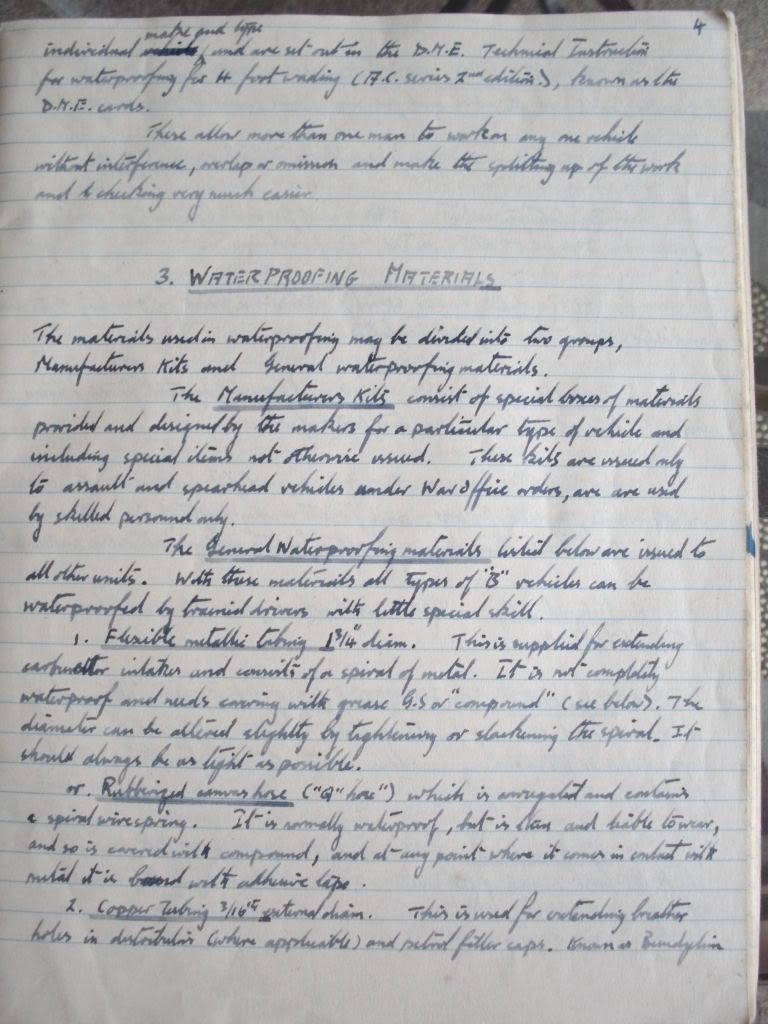 4
make and type
individual vehicle, and are set out in the D.M.E. Technical Instruction
for waterproofing for 4 foot wading (A.C. series 2nd edition), known as the
D.M.E. cards.
These allow more than one man to work on any one vehicle
without interference, overlap or omission and make the splitting up of the work
and checking very much easier.
3. WATERPROOFING MATERIALS
The materials used in waterproofing may be divided into two groups,
Manufacturers Kits and General waterproofing materials.
The Manufacturers Kits consist of special boxes of materials
provided and designed by the makers for a particular type of vehicle and
including special items not otherwise issued. These kits are issued only
to assault and spearhead vehicles under War Office orders, are are used
by skilled personnel only.
The General Waterproofing materials listed below are issued to
all other units. With these materials all types of "B" vehicles can be
waterproofed by trained drivers with little special skill.
1. Flexible metallic tubing 1 3/4" diam. This is supplied for extending
carburettor intakes and consists of a spiral of metal. It is not completely
waterproof and needs covering with grease G.S or "compound" (see below). The
diameter can be altered slightly by tightening or slackening the spiral. It
should always be as tight as possible.
or. Rubberized canvas hose ("Q" hose") which is corrugated and contains
a spiral wire spring. It is normally waterproof, but is thin and liable to wear,
and so is covered with compound, and at any point where it comes in contact with
metal it is bound with adhesive tape.
2. Copper Tubing 3/16th external diam. This is used for extending breather
holes in distributors (where applicable) and petrol filler caps. Known as